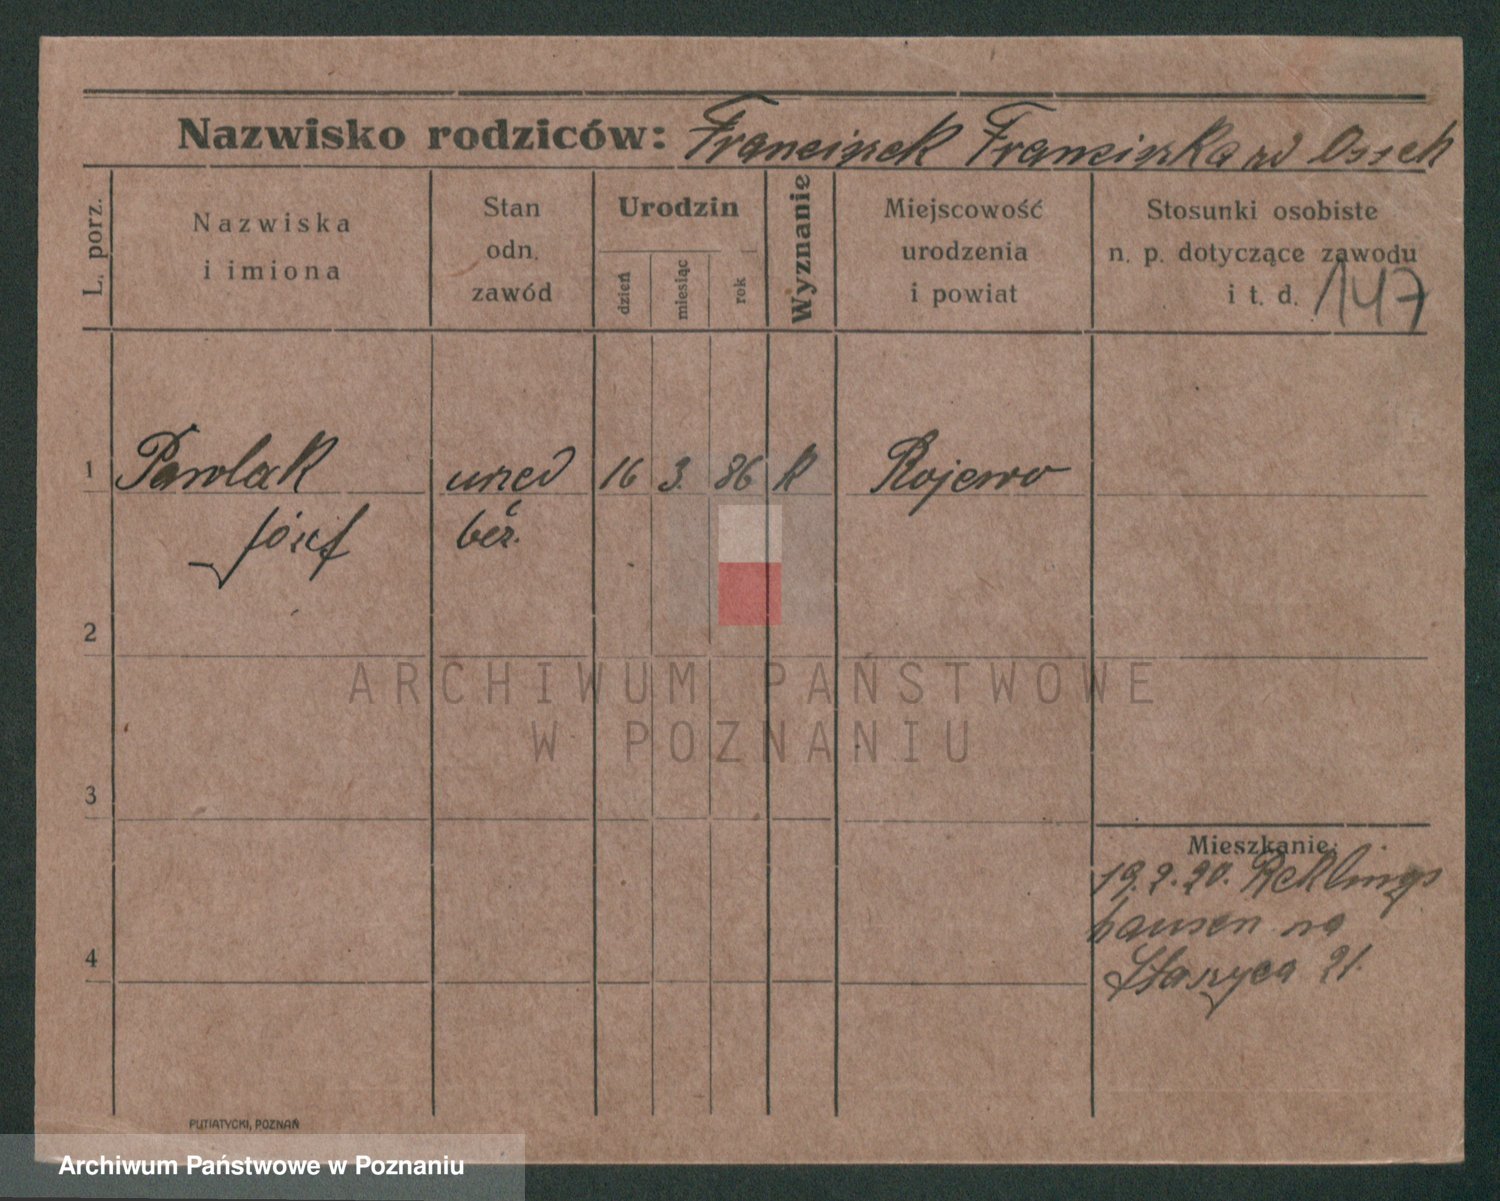 Nazwisko rodziców: Franciszek Franciszka zd Ossek
L. porz.
Nazwiska
i imiona
Stan
odn.
zawód
Urodzin
dzień
miesiąc
rok
Wyznanie
Miejscowość
urodzenia
i powiat
Stosunki osobiste
n. p. dotyczące zawodu
i t. d. 147
1 Pawlak urzed 16 3. 86 k Rojewo
Józef
2
ARCHIWUM PAŃSTWOWE
W POZNANIU
3
Mieszkanie:
19.2.20. Reklings
hausen na
4 Staszyca 21.
PUTIATYCKI, POZNAŃ
Archiwum Państwowe w Poznaniu